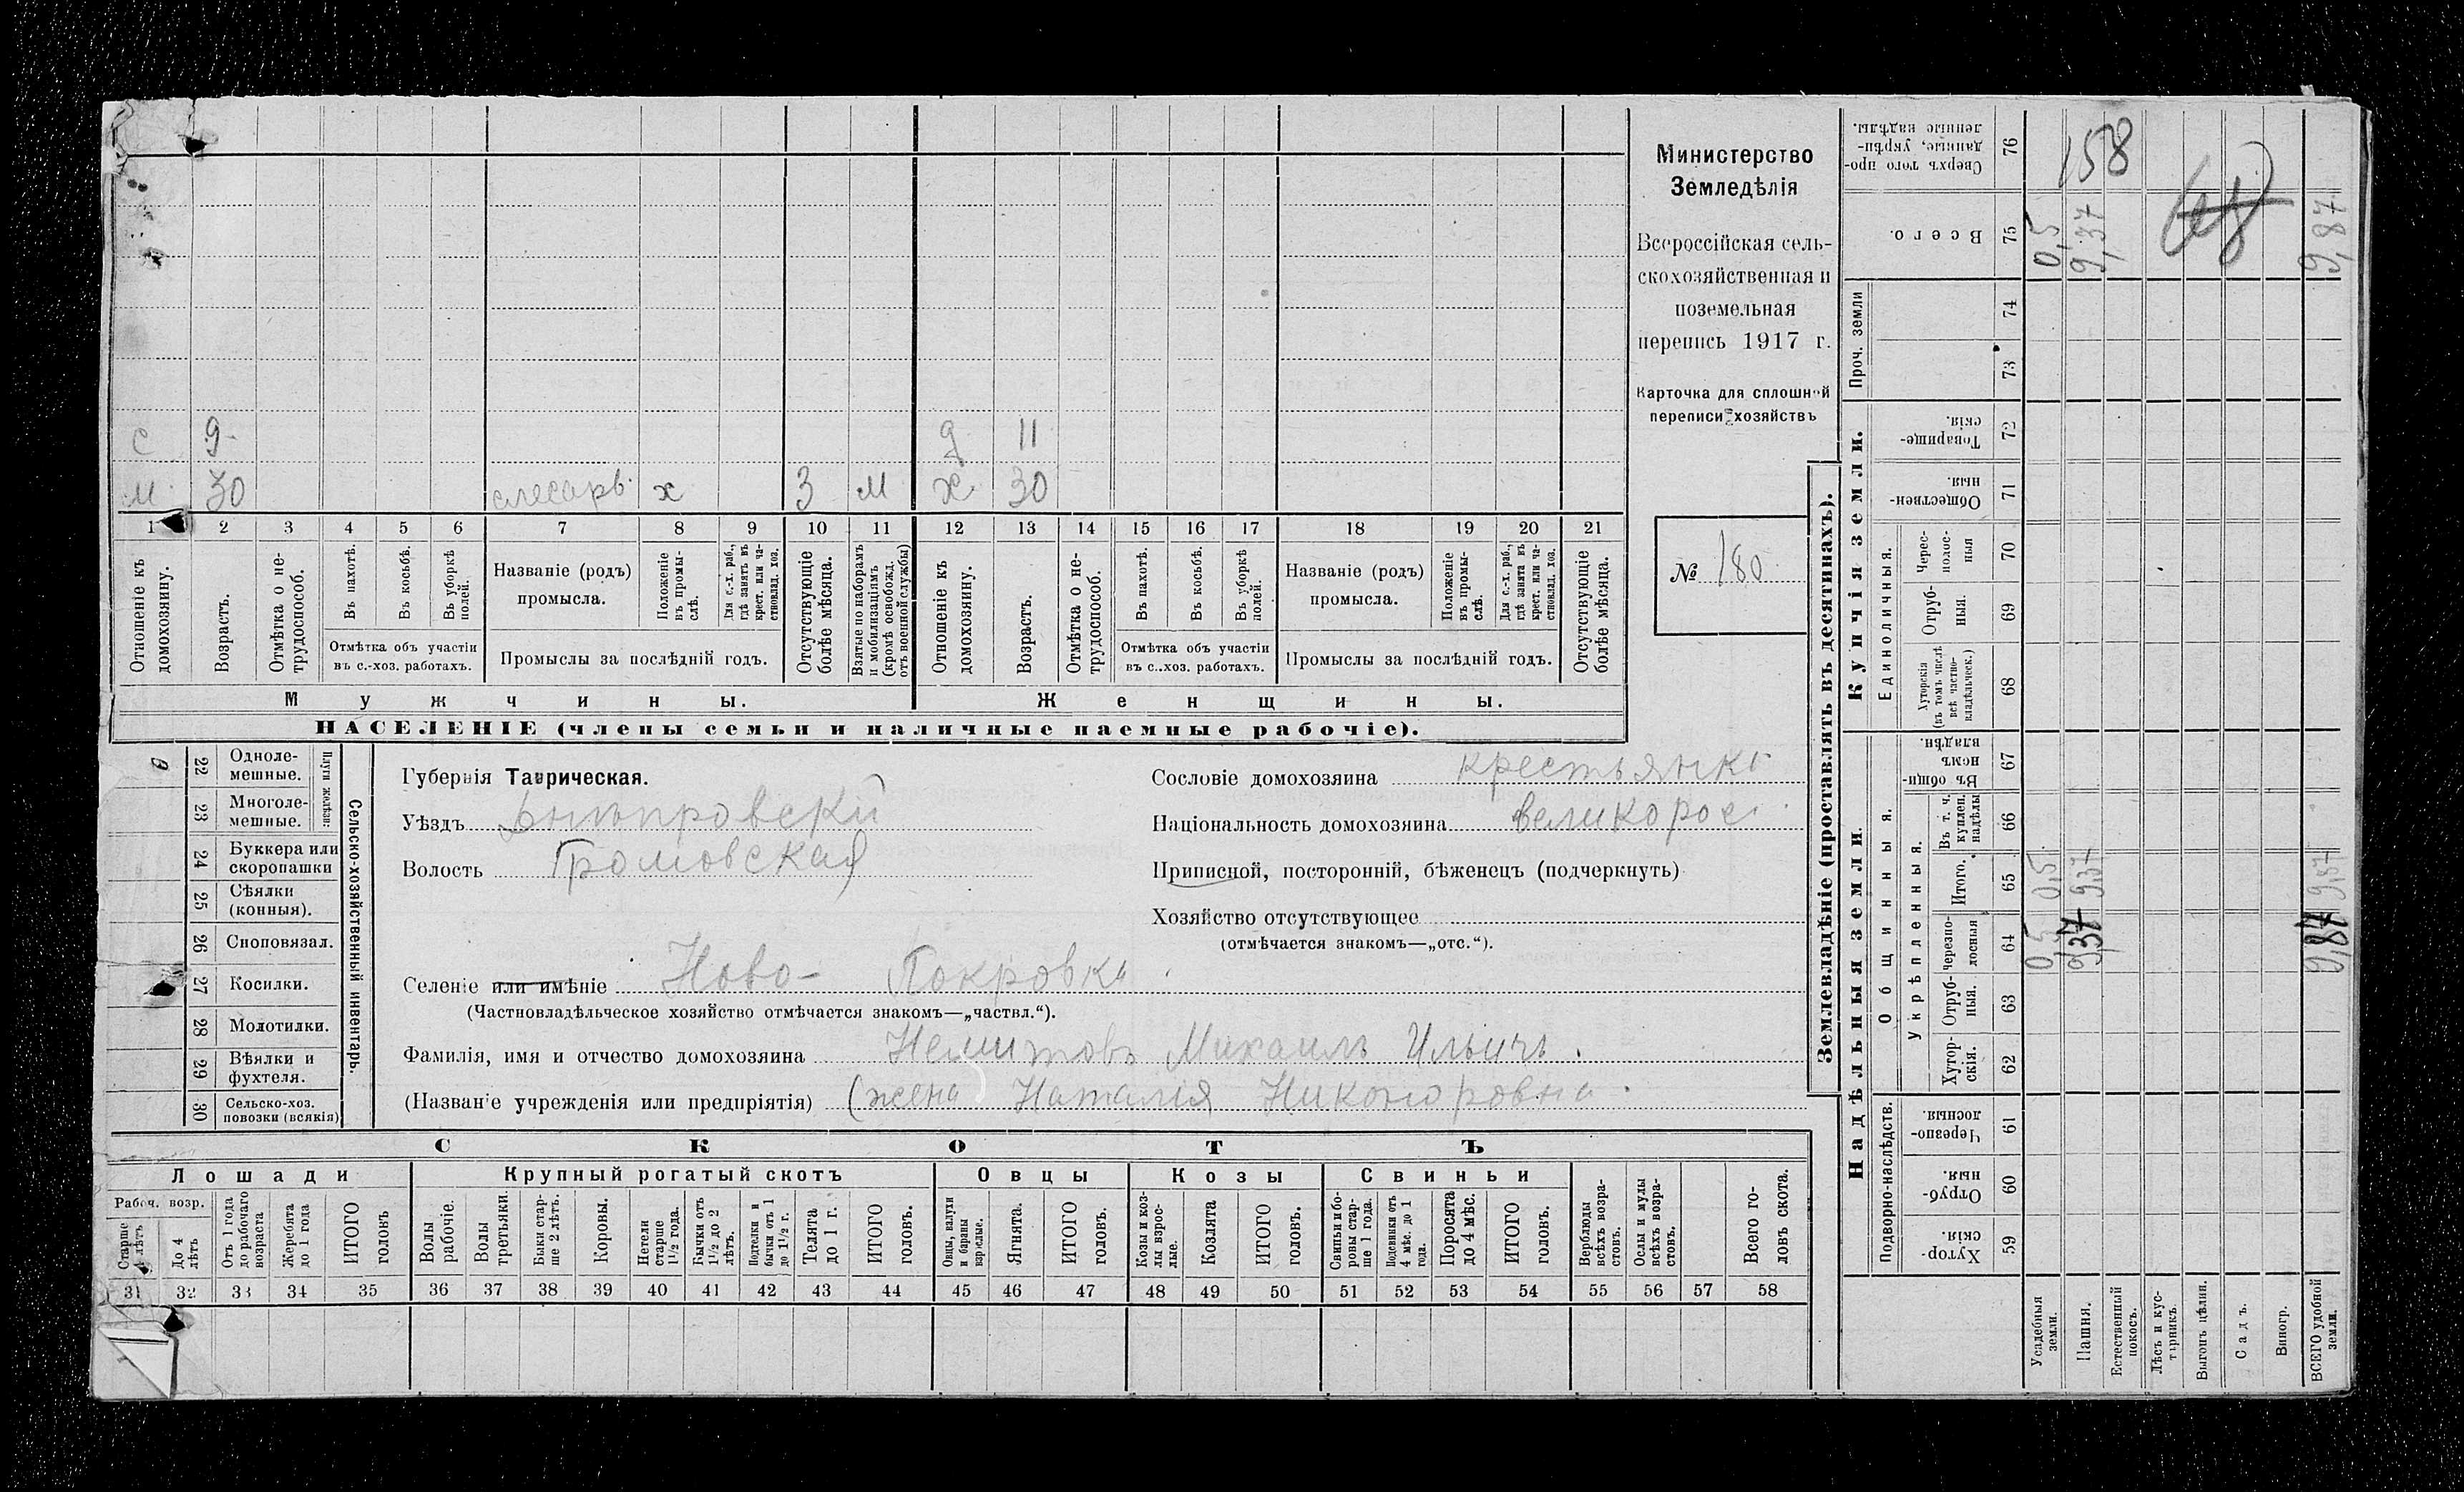 Министерство
Земледѣлія
Всероссійская сель-
скохозяйственная и
поземельная
перепись 1917 г.
Карточка для сплошной
переписи хозяйствъ
№ 180
с 9 д 11
м 30 слесарь х 3 м ж 30
1 2 3 4 5 6 7 8 9 10 11 12 13 14 15 16 17 18 19 20 21
Отношеніе къ домохозяину.
Возрастъ.
Отмѣтка о не-трудоспособ.
Въ пахотѣ.
Въ косьбѣ.
Въ уборкѣ полей.
Отмѣтка объ участіи
въ с.-хоз. работахъ.
Названіе (родъ)
промысла.
Положеніе въ промы-слѣ.
Для с.-х. раб., гдѣ занятъ въ крест. или ча-стновлад. хоз.
Промыслы за послѣдній годъ.
Отсутствующіе болѣе мѣсяца.
Взятые по наборамъ и мобилизаціямъ (кромѣ освобожд. отъ военной службы)
Отношеніе къ домохозяину.
Возрастъ.
Отмѣтка о не-трудоспособ.
Въ пахотѣ.
Въ косьбѣ.
Въ уборкѣ полей.
Отмѣтка объ участіи
въ с..хоз. работахъ.
Названіе (родъ)
промысла.
Положеніе въ промы-слѣ.
Для с.-х. раб., гдѣ занята въ крест. или ча-стновлад. хоз.
Промыслы за послѣдній годъ.
Отсутствующіе болѣе мѣсяца.
Мужчины. Женщины.
НАСЕЛЕНІЕ (члены семьи и наличные наемные рабочіе).
22 Одноле-мешные.
23 Многоле-мешные.
24 Буккера или скоропашки
25 Сѣялки (конныя).
26 Сноповязал.
27 Косилки.
28 Молотилки.
29 Вѣялки и фухтеля.
30 Сельско-хоз. повозки (всякія)
Плуги желѣзн:
Сельско-хозяйственный инвентарь.
Губернія Таврическая.
Уѣздъ Днѣпровскій
Волость Громовская
Селеніе или имѣніе Ново-Покровка
(Частновладѣльческое хозяйство отмѣчается знакомъ—„частвл.“).
Фамилія, имя и отчество домохозяина Михаилъ Ильичъ.
(Названіе учрежденія или предпріятія) (жена Наталія Никоноровна.
Сословіе домохозяина
Національность домохозяина великорос.
Приписной, посторонній, бѣженецъ (подчеркнуть)
Хозяйство отсутствующее
(отмѣчается знакомъ—„отс.“).
СКОТЪ
Лошади Крупный рогатый скотъ Овцы Козы Свиньи
Рабоч. возр.
Старше 4 лѣтъ
До 4 лѣтъ
Отъ 1 года до рабочаго возраста
Жеребята до 1 года
ИТОГО головъ
Волы рабочіе.
Волы третьяки.
Быки стар-ше 2 лѣтъ.
Коровы.
Нетели старше 1½ года.
Бычки отъ 1½ до 2 лѣтъ.
Подтелки и бычки отъ 1 до 1½ г.
Телята до 1 г.
ИТОГО головъ.
Овцы, валухи и бараны взрослые.
Ягнята.
ИТОГО головъ.
Козы и коз-лы взрос-лые.
Козлята
ИТОГО головъ.
Свиньи и бо-ровы стар-ше 1 года.
Подсвинки отъ 4 мѣс. до 1 года.
Поросята до 4 мѣс.
ИТОГО головъ.
Верблюды всѣхъ возра-стовъ.
Ослы и мулы всѣхъ возра-стовъ.
Всего го-ловъ скота.
31 32 33 34 35 36 37 38 39 40 41 42 43 44 45 46 47 48 49 50 51 52 53 54 55 56 57 58
Землевладѣніе (проставлять въ десятинахъ).
Надѣльныя земли.
Купчія земли.
Проч. земли
Подворно-наслѣдств.
Общинныя.
Укрѣпленныя.
Единоличныя.
Сверхъ того про-данные, укрѣп-ленные надѣлы. 76 158
Всего. 75 0,5 9,37 9,87
74
73
Товарище-скія. 72
Обществен-ныя. 71
Черес-полос-ныя 70
Отруб-ныя. 69
Хуторскія (въ томъ числѣ всѣ частно-владѣльческ.) 68
Въ общи-номъ владѣн. 67
Въ т. ч. куплен. надѣлы 66
Итого. 65 0,5 9,37
Черезпо-лосныя 64 0,5 9,37 9,87
Отруб-ныя. 63
Хутор-скія. 62
Черезпо-лосныя. 61
Отруб-ныя. 60
Хутор-скія. 59
Усадебныя земли.
Пашня.
Естественный покосъ.
Лѣсъ и кус-тарникъ.
Выгонъ цѣлин.
Садъ.
Виногр.
ВСЕГО удобной земли.